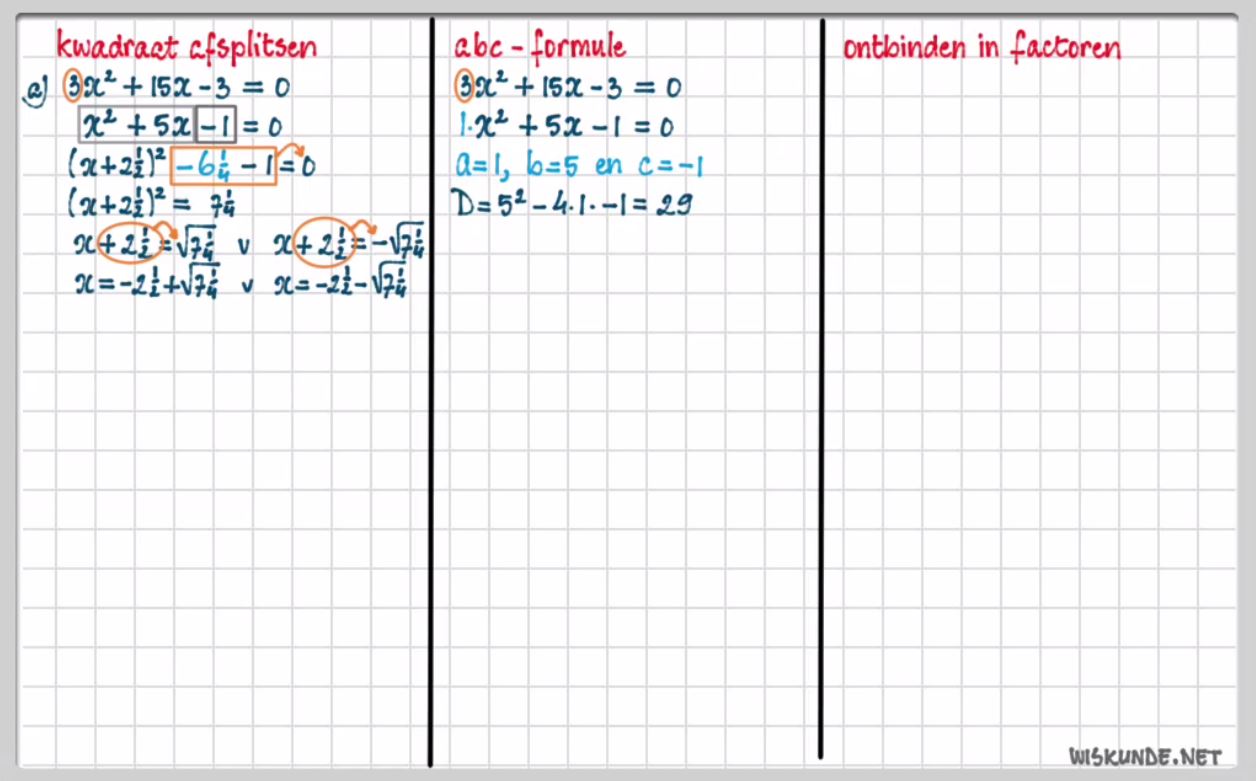 kwadraat afsplitsen
a) 3x² + 15x - 3 = 0
x² + 5x - 1 = 0
(x+2½)² - 6¼ - 1 = 0
(x+2½)² = 7¼
x + 2½ = √7¼ v x + 2½ = -√7¼
x = -2½ + √7¼ v x = -2½ - √7¼
abc - formule
3x² + 15x - 3 = 0
1·x² + 5x - 1 = 0
a=1, b=5 en c=-1
D = 5² - 4·1·-1 = 29
ontbinden in factoren
WISKUNDE.NET